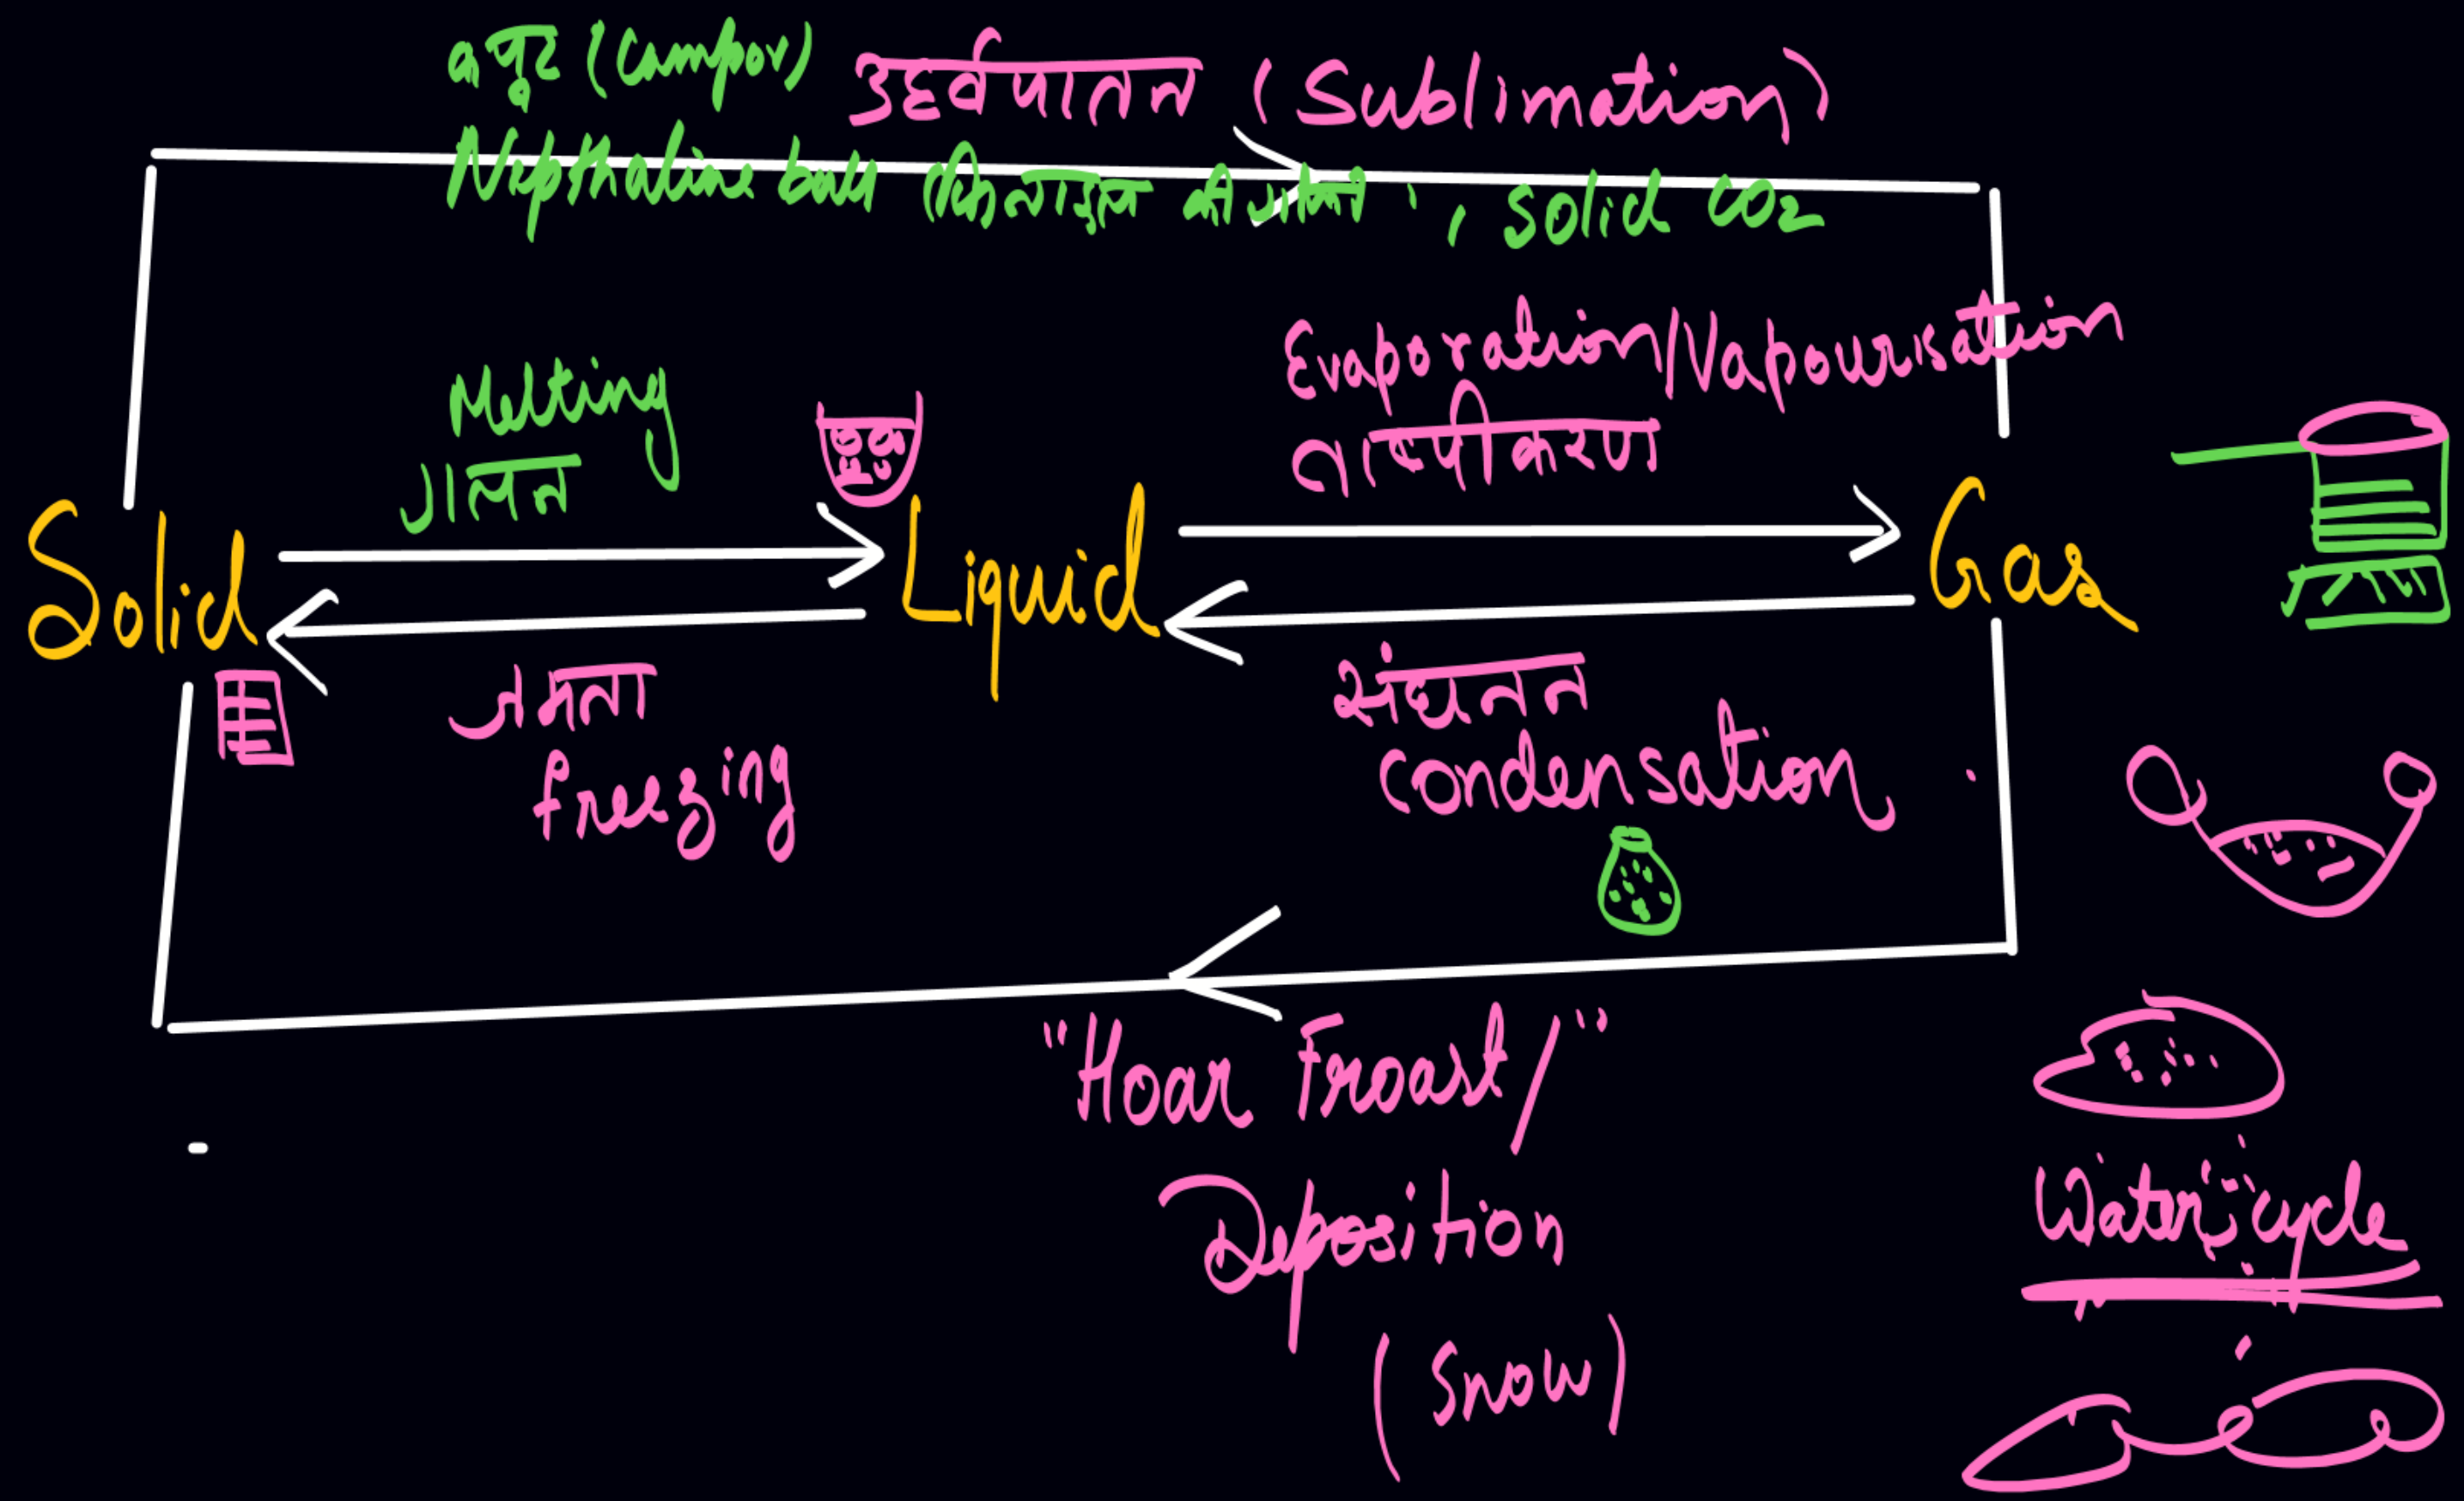 कपूर (Campor)
उर्ध्वपातन (Sublimation)
Nepthaline ball (फिनाइल की गोली), Solid CO2
Evaporation/Vapourisation
वाष्पीकरण
Melting
गलन
Solid
Liquid
Gas
जमना
freezing
संघनन
Condensation
"Hoar Froast/"
Deposition
(Snow)
Water cycle